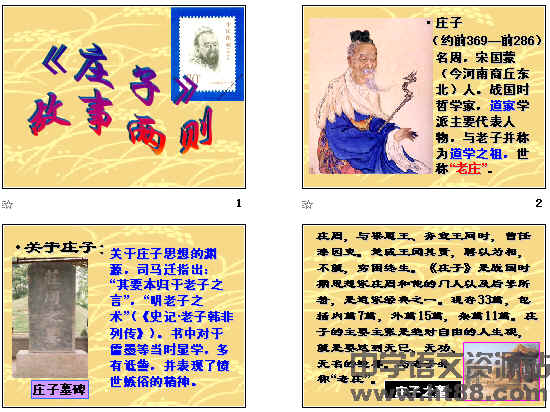 《庄子》
故事两则
1
·庄子
（约前369—前286）
名周，宋国蒙
（今河南商丘东
北）人。战国时
哲学家，道家学
派主要代表人
物，与老子并称
为道学之祖，世
称“老庄”。
2
·关于庄子：
关于庄子思想的渊
源，司马迁指出：
“其要本归于老子之
言”，“明老子之
术”（《史记·老子韩非
列传》）。书中对于
儒墨等当时显学，多
有诋訾，并表现了愤
世嫉俗的精神。
庄子墓碑
3
庄周，与梁惠王、齐宣王同时，曾任
漆园吏。楚威王闻其贤，聘以为相，
不就，穷困终生。《庄子》是战国时
期思想家庄周和他的门人以及后学所
著，是道家经典之一。现存33篇，包
括内篇7篇，外篇15篇，杂篇11篇。庄
子的主要主张是绝对自由的人生观，
就是要达到无己、无功、
无名的
称“老庄”。
庄子故事
4
中学语文资源站
www.zy88.com